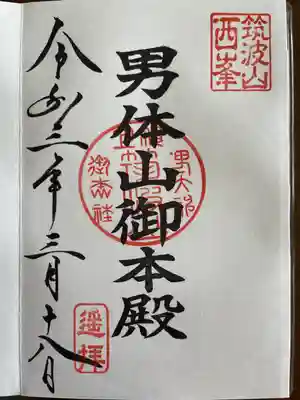 筑波山
西峯
男体山御本殿
令和三年三月十八日
遥拝